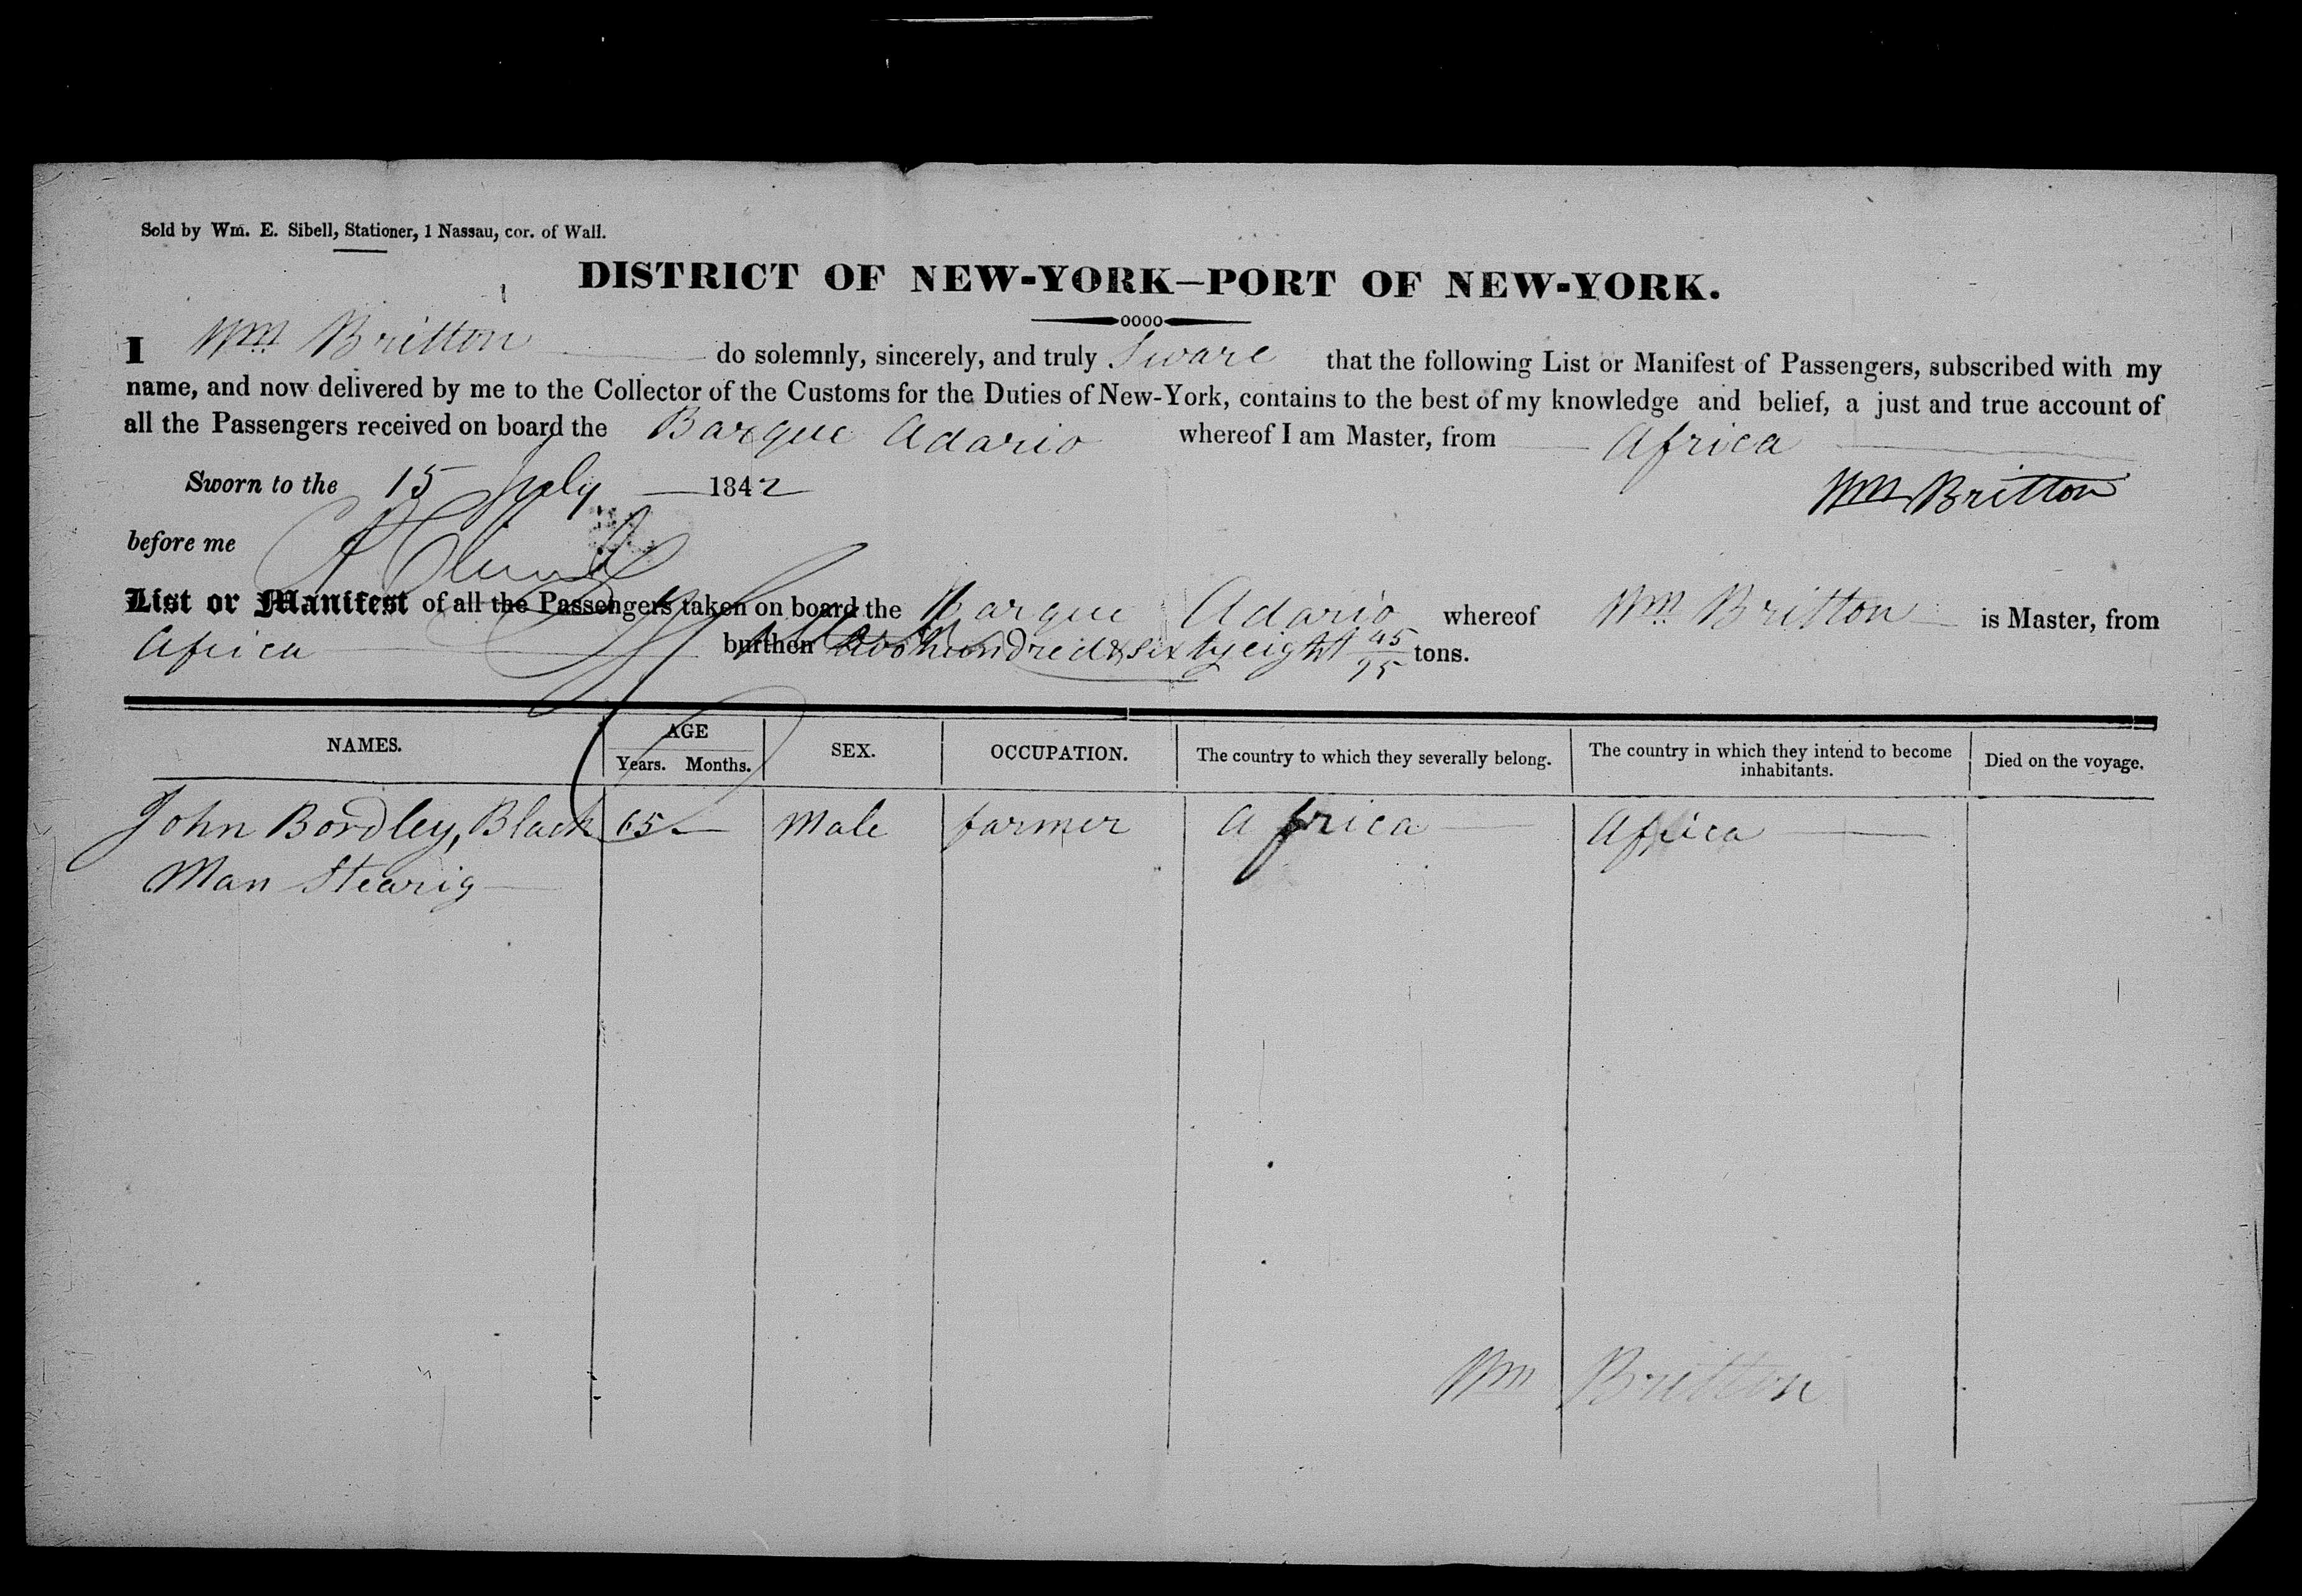 Sold by Wm. E. Sibell, Stationer, 1 Nassau, cor. of Wall.
DISTRICT OF NEW-YORK—PORT OF NEW-YORK.
I Wm Britton do solemnly, sincerely, and truly Sware that the following List or Manifest of Passengers, subscribed with my
name, and now delivered by me to the Collector of the Customs for the Duties of New-York, contains to the best of my knowledge and belief, a just and true account of
all the Passengers received on board the Barque Adario whereof I am Master, from Africa
Sworn to the 15 July 1842
Wm Britton
before me
List or Manifest of all the Passengers taken on board the Barque Adario whereof Wm Britton is Master, from
Africa burthen two hundred & sixty eight 45/95 tons.
NAMES. AGE Years. Months. SEX. OCCUPATION. The country to which they severally belong. The country in which they intend to become inhabitants. Died on the voyage.
John Bordley, Black 65 Male farmer Africa Africa
Man Stearig
Wm Britton